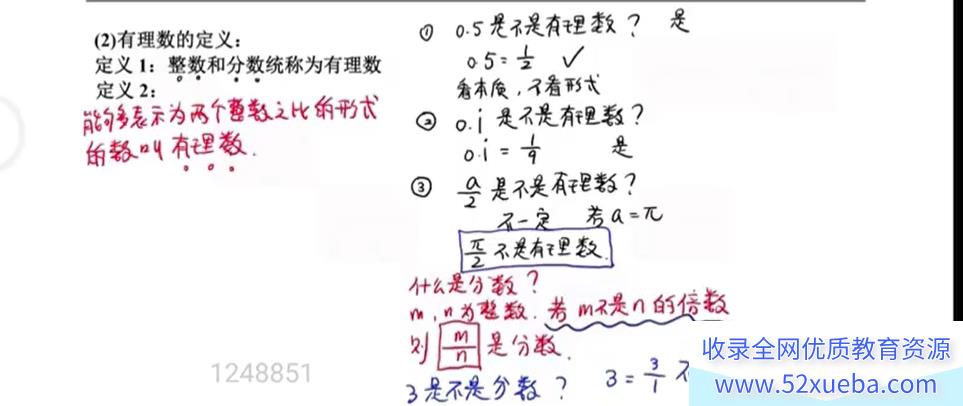 (2)有理数的定义：
定义 1：整数和分数统称为有理数
定义 2：
能够表示为两个整数之比的形式
的数叫有理数.
① 0.5是不是有理数？ 是
0.5=1/2 ✓
看本质，不看形式
② 0.i 是不是有理数？
0.i = 1/9 是
③ a/2 是不是有理数？
不一定 若a=π
π/2 不是有理数.
什么是分数？
m,n为整数. 若m不是n的倍数
则 m/n 是分数.
3是不是分数？ 3=3/1 不
1248851
收录全网优质教育资源
www.52xueba.com